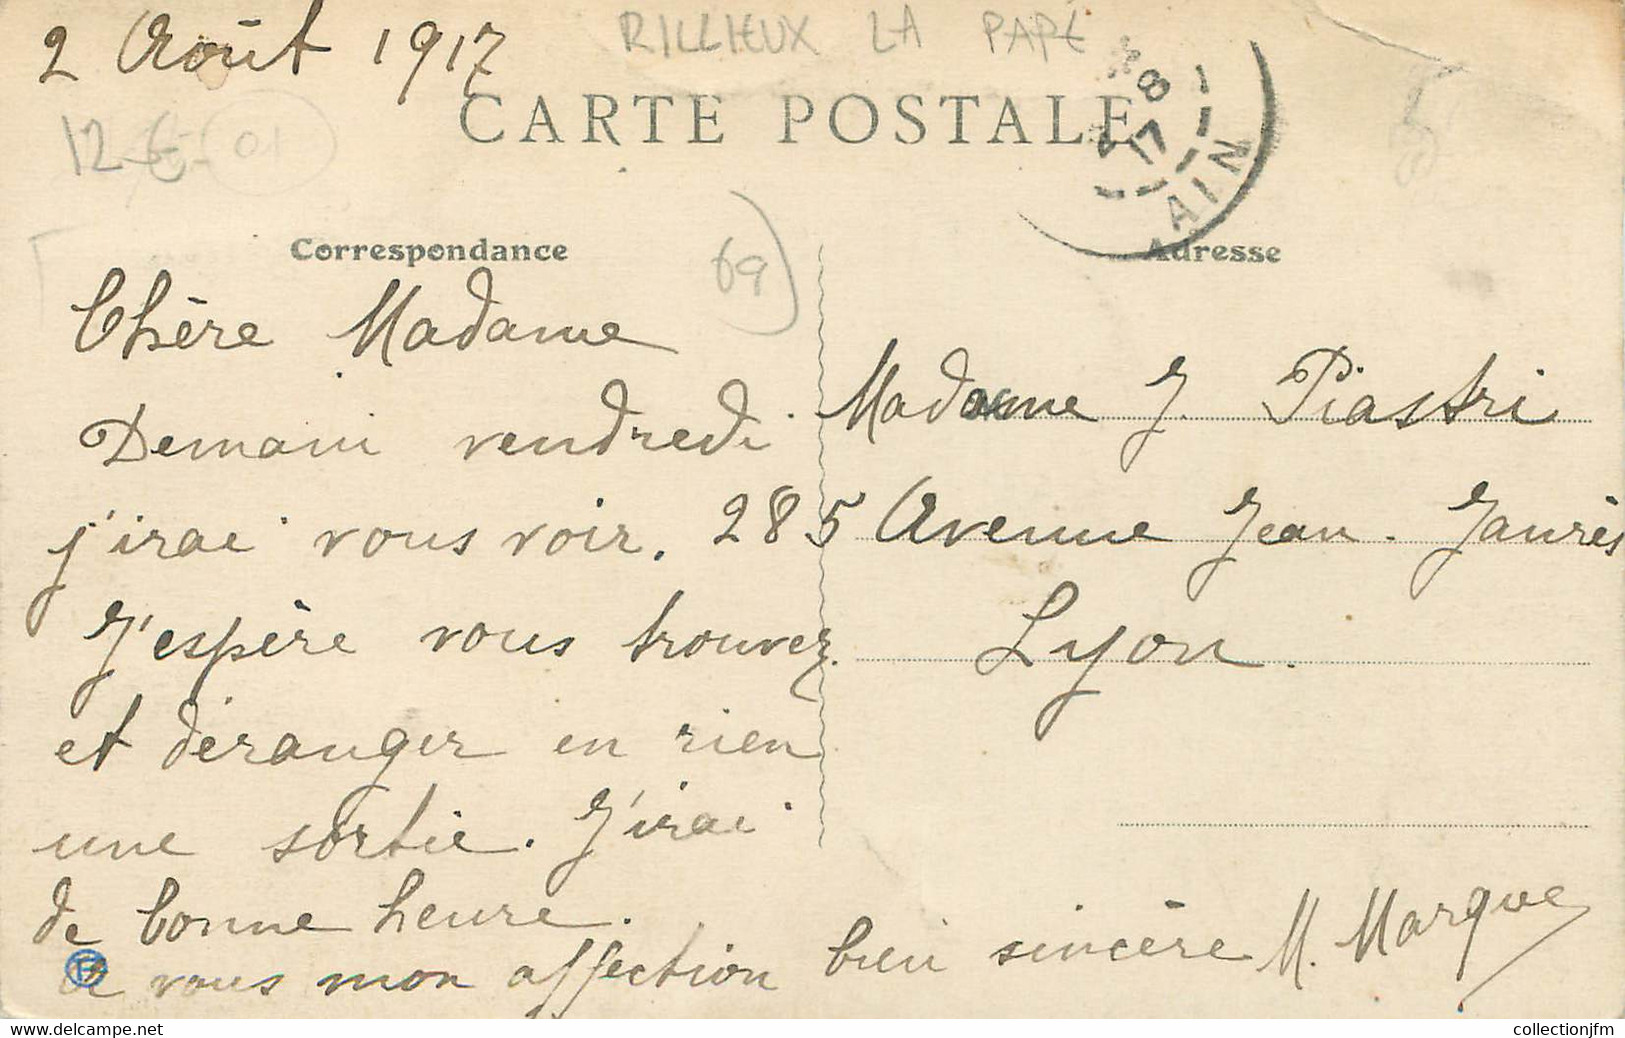 2 Août 1917
RILLIEUX LA PAPE
12 € 01
CARTE POSTALE
8
17
AIN
Correspondance
69
Adresse
Chère Madame
Demain vendredi
j'irai vous voir.
J'espère vous trouvez
et déranger en rien
une sortie. J'irai
de bonne heure.
à vous mon affection bien sincère M. Marque
Madame J. Piastri
285 Avenue Jean. Jaurès
Lyon.
www.delcampe.net
collectionjfm